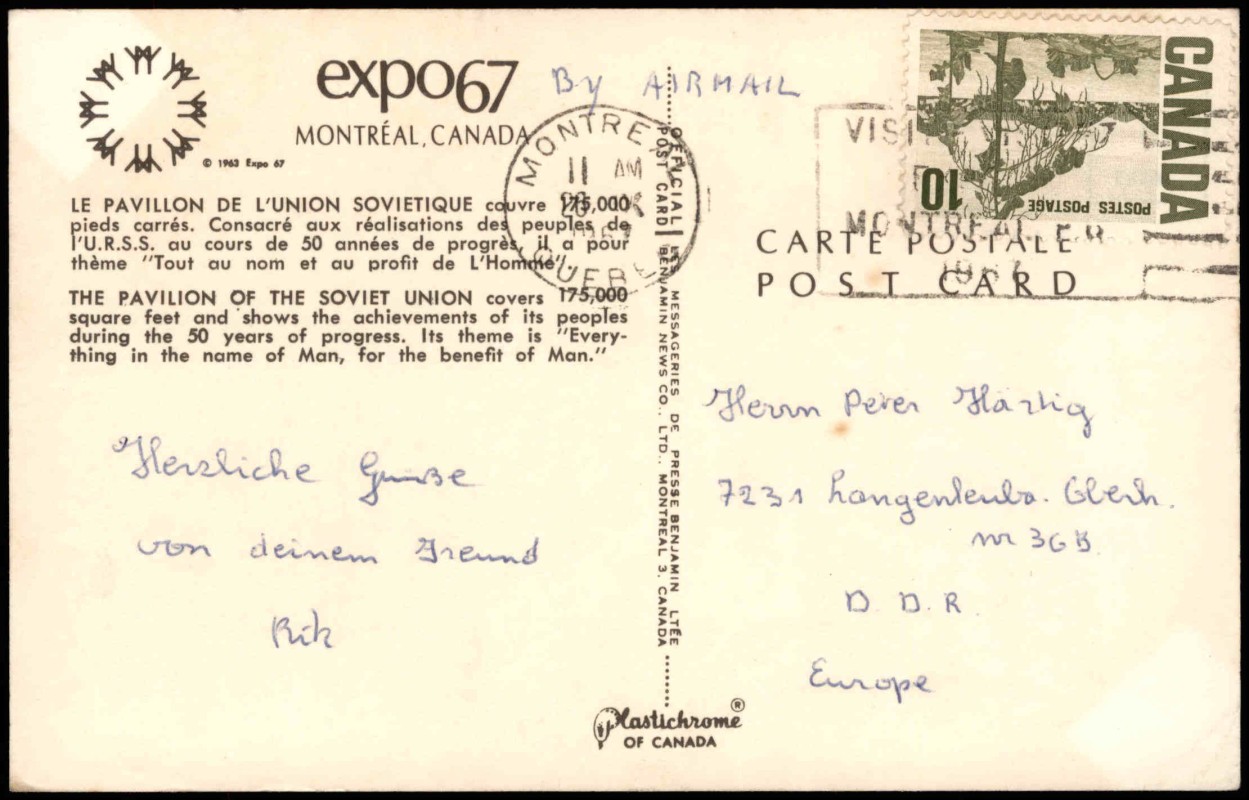 expo67
MONTRÉAL, CANADA
© 1963 Expo 67
By AIRMAIL
LE PAVILLON DE L'UNION SOVIETIQUE couvre 175,000
pieds carrés. Consacré aux réalisations des peuples de
l'U.R.S.S. au cours de 50 années de progrès, il a pour
thème "Tout au nom et au profit de L'Homme".
THE PAVILION OF THE SOVIET UNION covers 175,000
square feet and shows the achievements of its peoples
during the 50 years of progress. Its theme is "Every-
thing in the name of Man, for the benefit of Man."
Herzliche Grüße
von deinem Freund
Rik
OFFICIAL LES MESSAGERIES DE PRESSE BENJAMIN LTÉE
POST CARD BENJAMIN NEWS CO., LTD., MONTREAL 3, CANADA
Plastichrome®
OF CANADA
MONTREAL
11 AM
QUEBEC
CANADA
10
POSTES POSTAGE
VISIT
MONTREAL
1967
CARTE POSTALE
POST CARD
Herrn Peter Härtig
7231 Langenleuba. Oberh.
nr 36B
D. D. R.
Europe